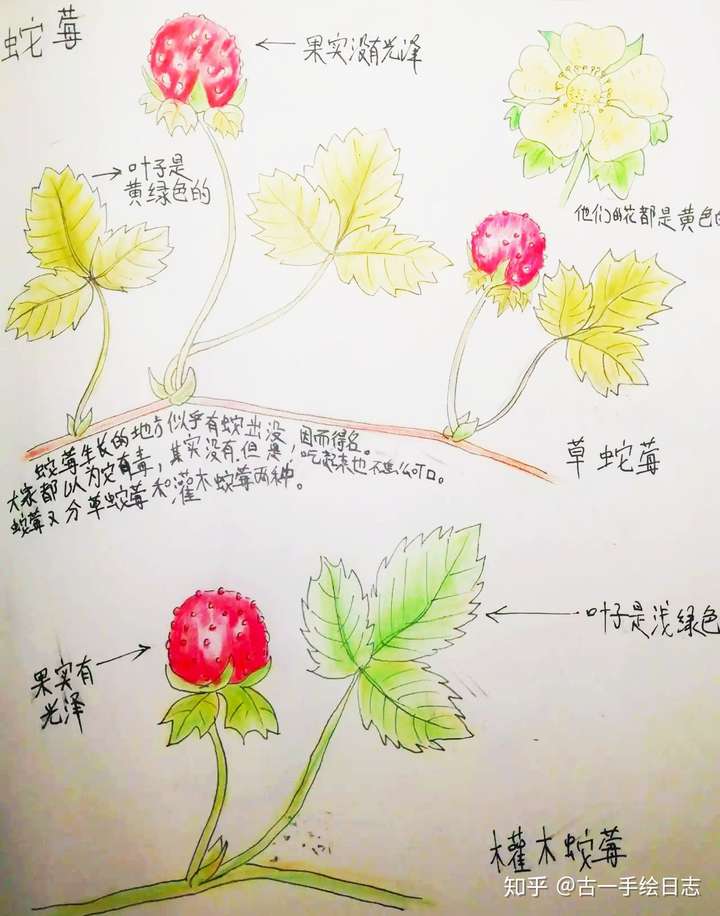 蛇莓
果实没有光泽
叶子是
黄绿色的
他们的花都是黄色的
蛇莓生长的地方似乎有蛇出没，因而得名。
大家都以为它有毒，其实没有，但是，吃起来也不怎么可口。
蛇莓又分草蛇莓和灌木蛇莓两种。
草蛇莓
叶子是浅绿色
果实有
光泽
灌木蛇莓
知乎 @古一手绘日志